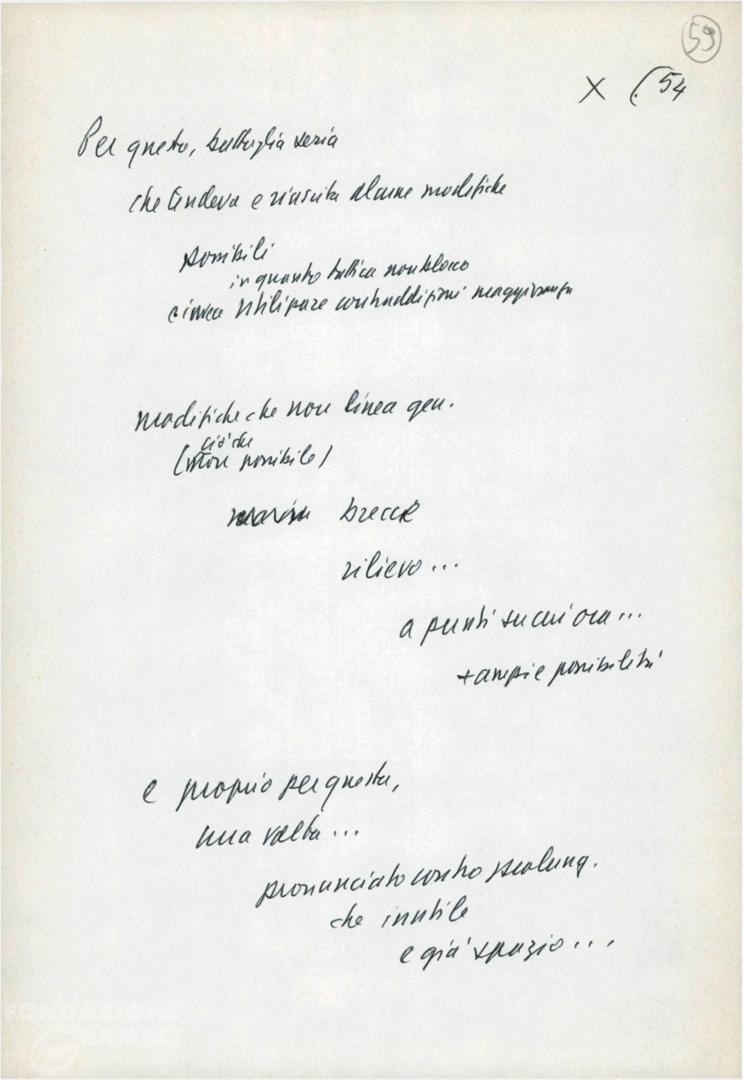 59
X (. 54
Per questo, battaglia seria
che tendeva e riuscita alcune modifiche
possibili
in quanto tattica non blocco
e invece utilizzare contraddizioni maggioranza
modifiche che non linea gen.
ciò che
( possibile)
brecce
rilievo...
a punti su cui ora...
+ ampie possibilità
e proprio per questo,
una volta...
pronunciato contro prolung.
che inutile
e già spazio...,
FONDAZIONE
GRAMSCI